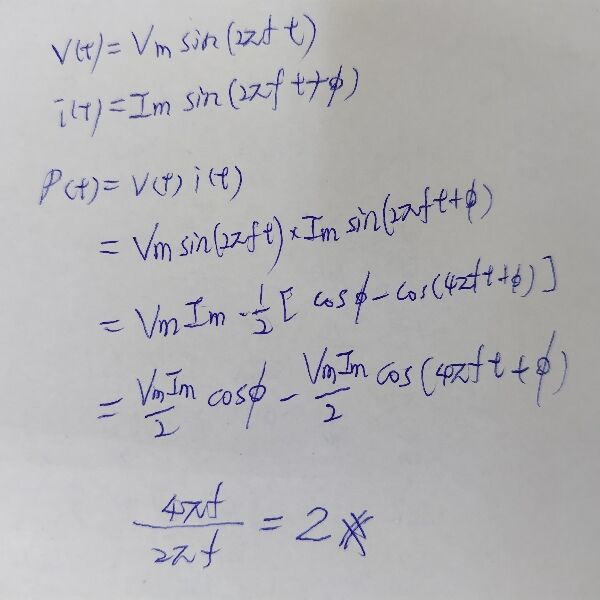 V(t) = Vm sin(2πft)
i(t) = Im sin(2πft+ϕ)
P(t) = V(t) i(t)
= Vm sin(2πft) × Im sin(2πft+ϕ)
= Vm Im · 1/2 [ cosϕ - cos(4πft+ϕ) ]
= VmIm/2 cosϕ - VmIm/2 cos(4πft+ϕ)
4πf/2πf = 2